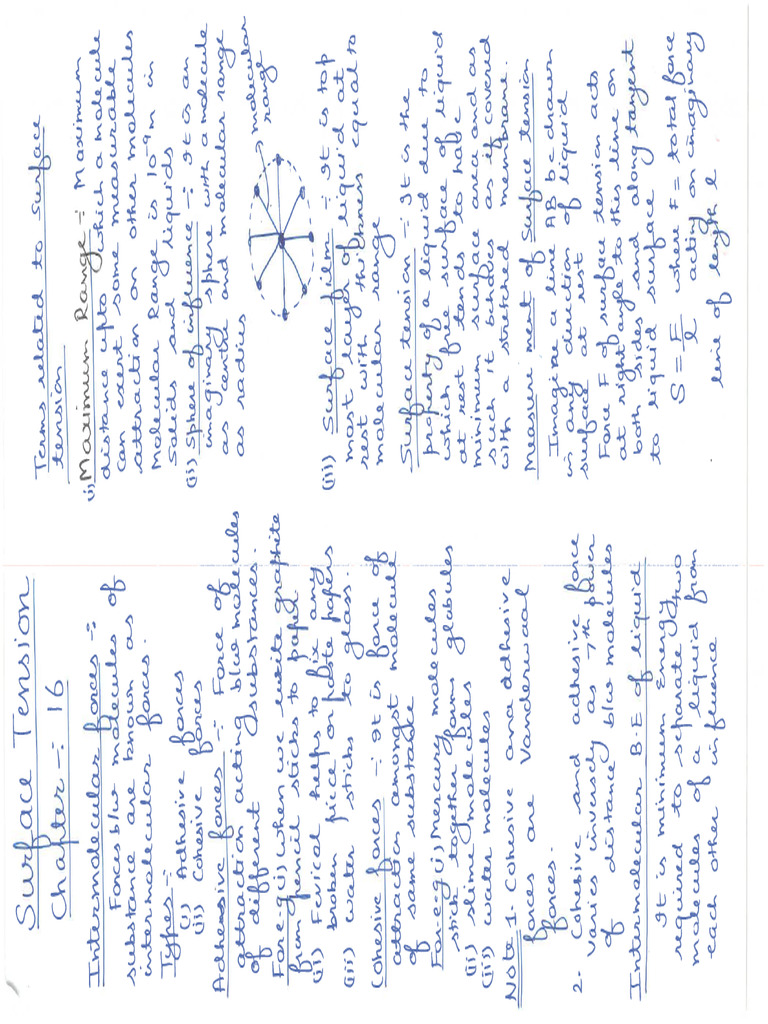 Surface Tension
Chapter :- 16
Intermolecular forces :-
Forces b/w molecules of
substance are known as
intermolecular forces.
Types :-
(i) Adhesive forces
(ii) Cohesive forces
Adhessive forces :- Force of
attraction acting b/w molecules
of different substances.
For e-g (i) when we write graphite
from pencil sticks to paper
(ii) Fevical helps to fix any
broken piece or paste papers
(iii) water sticks to glass.
Cohesive forces :- It is force of
attraction amongst molecule
of same substance
For e-g (i) Mercury molecules
stick together forms globules
(ii) slime molecules
(iii) water molecules
Note 1- Cohesive and adhesive
forces are Vanderwaal
forces.
2- Cohesive and adhesive force
varies inversly as 7th power
of distance b/w molecules
Intermolecular B.E of liquid
It is minimum Energy
required to separate two
molecules of a liquid from
each other influence
Terms related to surface
tension
(i) Maximum Range :- Maximum
distance upto which a molecule
can exert some measurable
attraction on other molecules
Molecular Range is 10⁻⁹m in
Solids and liquids
(ii) Sphere of influence :- It is an
imaginary sphere with a molecule
as centre and molecular range
as radius
molecular
range
(iii) Surface film :- It is top
most layer of liquid at
rest with thikness equal to
molecular range
Surface tension :- It is the
property of a liquid due to
which free surface of liquid
at rest tends to have
minimum surface area and as
such it behaves as if covered
with a stretched membrane.
Measurement of Surface tension
Imagine a line AB be drawn
in any direction of liquid
surface at rest
Force F of surface tension acts
at right angle to this line on
both sides and along tangent
to liquid surface
S = F/l where F = total force
acting on imaginary
line of length l